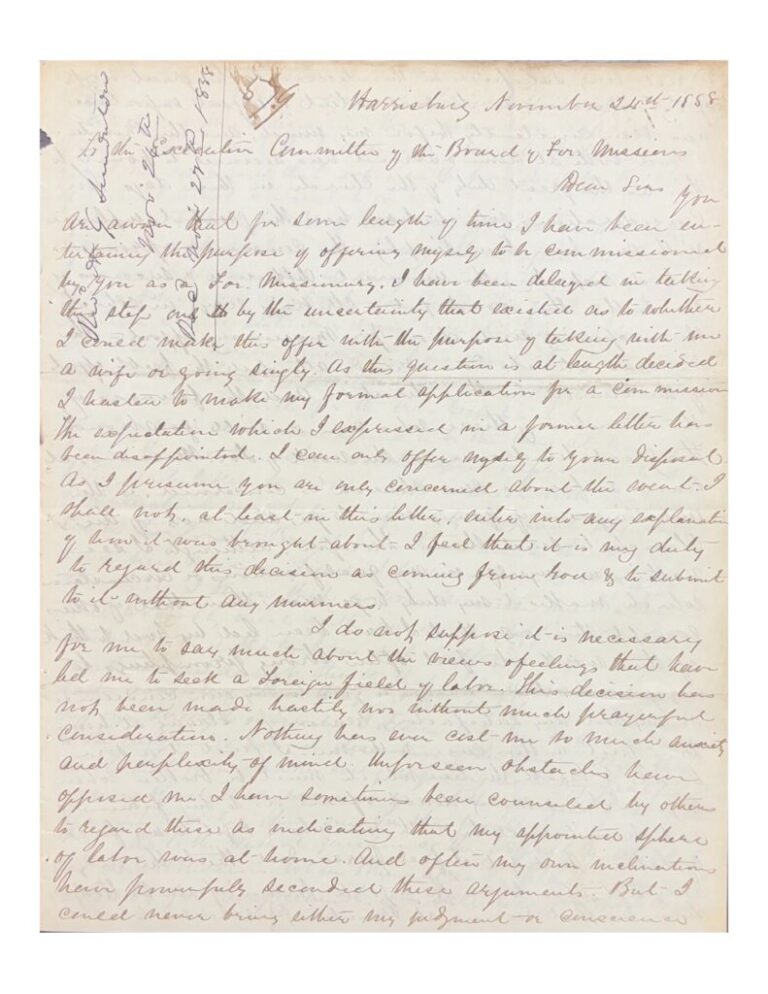 Harrisburg November 24th 1858
To the Executive Committee of the Board of For. Missions
Dear Sirs
You
are aware that for some length of time I have been en-
tertaining the purpose of offering myself to be commissioned
by you as a For. Missionary. I have been delayed in taking
this step by the uncertainty that existed as to whether
I could make this offer with the purpose of taking with me
a wife or going singly. As this question is at length decided
I hasten to make my formal application for a commission
The expectation which I expressed in a former letter has
been disappointed. I can only offer myself to your disposal.
As I presume you are only concerned about the event. I
shall not, at least in this letter, enter into any explanation
of how it was brought about. I feel that it is my duty
to regard this decision as coming from God & to submit
to it without any murmers
I do not suppose it is necessary
for me to say much about the views & feelings that have
led me to seek a Foreign field of labor. This decision has
not been made hastily nor without much prayerful
consideration. Nothing has ever cost me so much anxiety
and perplexity of mind. Unforseen obstacles have
opposed me I have sometimes been counseled by others
to regard these as indicating that my appointed sphere
of labor was at home. And often my own inclinations
have powerfully seconded these arguments. But I
could never bring either my judgment or conscience
Nov. 24th
Rec
1858